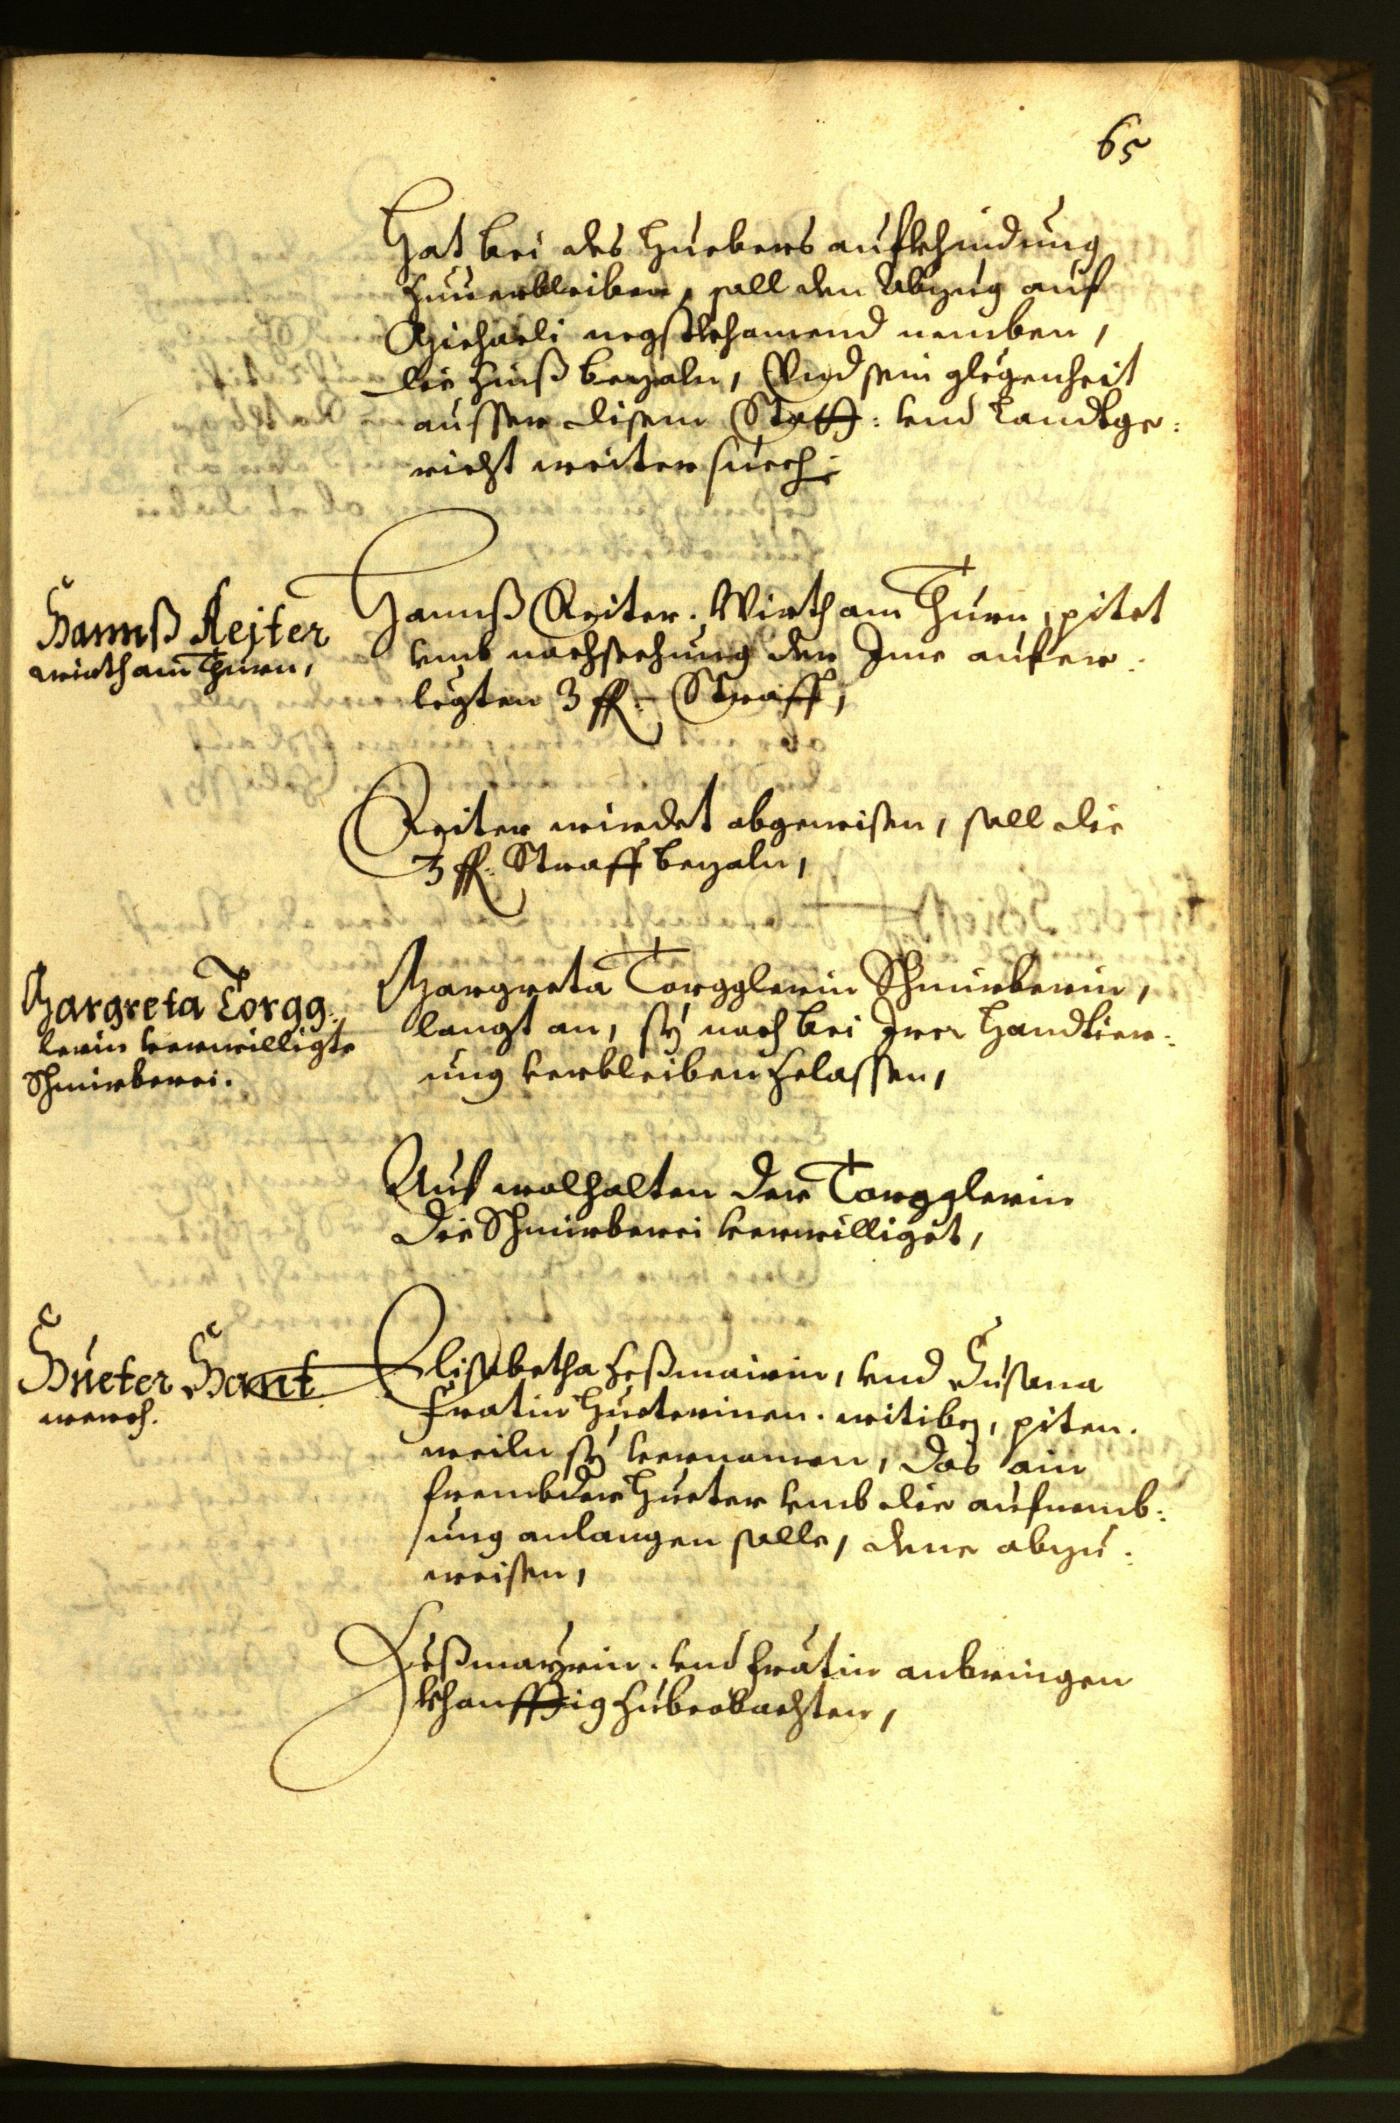 65
Hat bei des Huebers aufkhündung
zuuerbleiben, soll den Abzug auf
Michaeli negstkhamend nemben,
die Zinß bezaln, Vnd sein glegenheit
ausser disem Statt: vnd Landtge:
richt weiter suech:
Hannß Reiter
wirth am Thurn,
Hannß Reiter. Wirth am Thurn, pitet
vmb nachsechung der Ime aufer:
legten 3 fl: Straff,
Reiter wirdet abgewisen, soll die
3 fl: Straff bezaln,
Margreta Torgg:
lerin verwilligte
Schmirberei.
Margreta Torgglerin Schmirberin,
langt an, sÿ noch bei Irer Handtier:
ung verbleiben zelassen,
Auf wolhalten der Torgglerin
die Schmirberei verwilliget,
Hueter Hant
werch.
Elisabetha Zeßmairin, vnd Susana
Fratin Hueterinen. witiben, piten.
weiln sÿ vernomen, das ain
frembder Hueter vmb die aufnemb:
ung anlangen solle, dene abzu:
weisen,
Zeßmayrin. vnd Fratin anbringen
khonfftig zubeobachten,